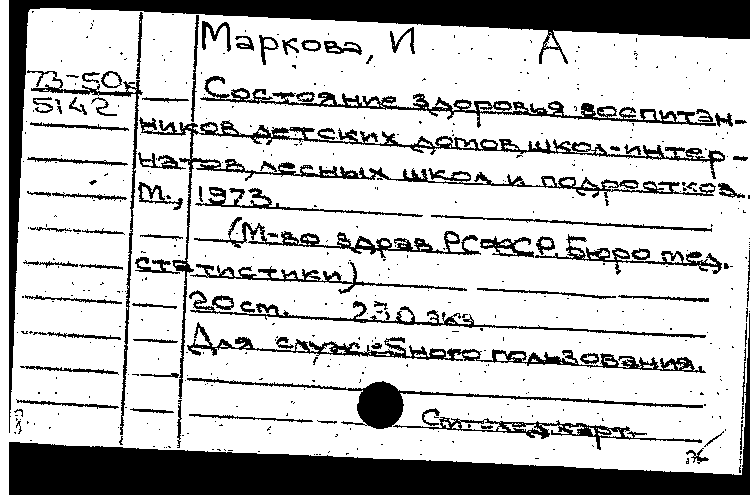 Маркова, И А
73-50к
5142
Состояние здоровья воспитан-
ников детских домов, школ-интер-
натов, лесных школ и подростков.
М., 1973.
(М-во здрав. РСФСР. Бюро мед.
статистики)
20 ст. экз.
Для служебного пользования.
См. след. карт.